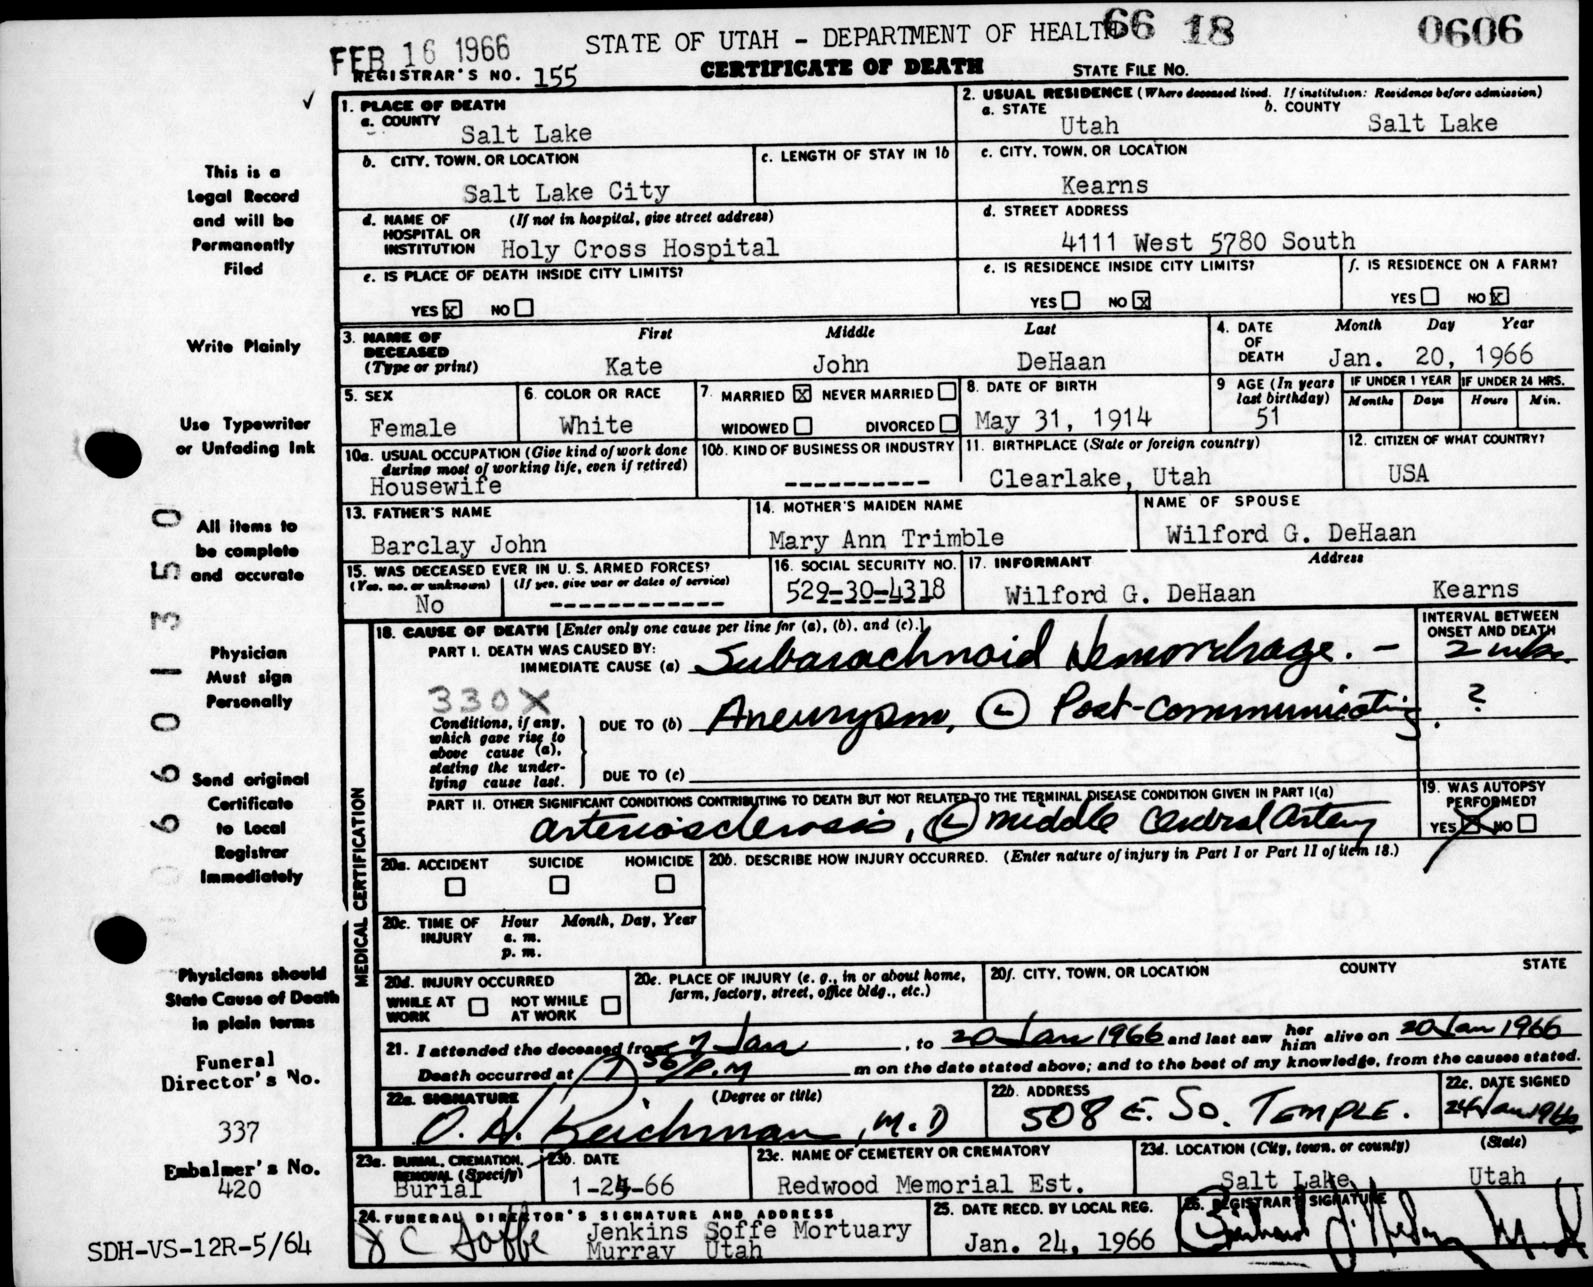 FEB 16 1966
STATE OF UTAH - DEPARTMENT OF HEALTH 66 18 0606
REGISTRAR'S NO. 155 CERTIFICATE OF DEATH STATE FILE NO.
1. PLACE OF DEATH
a. COUNTY
Salt Lake
2. USUAL RESIDENCE (Where deceased lived. If institution: Residence before admission)
a. STATE b. COUNTY
Utah Salt Lake
b. CITY, TOWN, OR LOCATION
Salt Lake City
c. LENGTH OF STAY IN 1b
c. CITY, TOWN, OR LOCATION
Kearns
d. NAME OF HOSPITAL OR INSTITUTION (If not in hospital, give street address)
Holy Cross Hospital
d. STREET ADDRESS
4111 West 5780 South
e. IS PLACE OF DEATH INSIDE CITY LIMITS?
YES x NO
e. IS RESIDENCE INSIDE CITY LIMITS?
YES NO x
f. IS RESIDENCE ON A FARM?
YES NO x
3. NAME OF DECEASED (Type or print) First Middle Last
Kate John DeHaan
4. DATE OF DEATH Month Day Year
Jan. 20, 1966
5. SEX
Female
6. COLOR OR RACE
White
7. MARRIED x NEVER MARRIED
WIDOWED DIVORCED
8. DATE OF BIRTH
May 31, 1914
9 AGE (In years last birthday)
51
IF UNDER 1 YEAR IF UNDER 24 HRS.
Months Days Hours Min.
10a. USUAL OCCUPATION (Give kind of work done during most of working life, even if retired)
Housewife
10b. KIND OF BUSINESS OR INDUSTRY
----------
11. BIRTHPLACE (State or foreign country)
Clearlake, Utah
12. CITIZEN OF WHAT COUNTRY?
USA
13. FATHER'S NAME
Barclay John
14. MOTHER'S MAIDEN NAME
Mary Ann Trimble
NAME OF SPOUSE
Wilford G. DeHaan
15. WAS DECEASED EVER IN U. S. ARMED FORCES?
(Yes, no, or unknown) (If yes, give war or dates of service)
No ------------
16. SOCIAL SECURITY NO.
529-30-4318
17. INFORMANT Address
Wilford G. DeHaan Kearns
MEDICAL CERTIFICATION
18. CAUSE OF DEATH [Enter only one cause per line for (a), (b), and (c).]
INTERVAL BETWEEN ONSET AND DEATH
PART I. DEATH WAS CAUSED BY:
IMMEDIATE CAUSE (a) Subarachnoid Hemorrhage. - 2 wks.
330X
Conditions, if any, which gave rise to above cause (a), stating the underlying cause last.
DUE TO (b) Aneurysm, L Post-communicating. ?
DUE TO (c)
PART II. OTHER SIGNIFICANT CONDITIONS CONTRIBUTING TO DEATH BUT NOT RELATED TO THE TERMINAL DISEASE CONDITION GIVEN IN PART I(a)
arteriosclerosis, L middle cerebral artery
19. WAS AUTOPSY PERFORMED?
YES x NO
20a. ACCIDENT SUICIDE HOMICIDE
20b. DESCRIBE HOW INJURY OCCURRED. (Enter nature of injury in Part I or Part II of item 18.)
20c. TIME OF INJURY Hour Month, Day, Year
a. m.
p. m.
20d. INJURY OCCURRED
WHILE AT WORK NOT WHILE AT WORK
20e. PLACE OF INJURY (e. g., in or about home, farm, factory, street, office bldg., etc.)
20f. CITY, TOWN, OR LOCATION COUNTY STATE
21. I attended the deceased from 7 Jan, to 20 Jan 1966 and last saw her him alive on 20 Jan 1966
Death occurred at 7 50 P.M m on the date stated above; and to the best of my knowledge, from the causes stated.
22a. SIGNATURE (Degree or title)
O. H. Reichman, M.D
22b. ADDRESS
508 E. So. TEMPLE.
22c. DATE SIGNED
24 Jan 1966
23a. BURIAL, CREMATION, REMOVAL (Specify)
Burial
23b. DATE
1-24-66
23c. NAME OF CEMETERY OR CREMATORY
Redwood Memorial Est.
23d. LOCATION (City, town, or county) (State)
Salt Lake Utah
24. FUNERAL DIRECTOR'S SIGNATURE AND ADDRESS
J C Soffe Jenkins Soffe Mortuary
Murray Utah
25. DATE RECD. BY LOCAL REG.
Jan. 24, 1966
26. REGISTRAR'S SIGNATURE
This is a
Legal Record
and will be
Permanently
Filed
Write Plainly
Use Typewriter
or Unfading Ink
All items to
be complete
and accurate
Physician
Must sign
Personally
Send original
Certificate
to Local
Registrar
Immediately
Physicians should
State Cause of Death
in plain terms
Funeral
Director's No.
337
Embalmer's No.
420
SDH-VS-12R-5/64